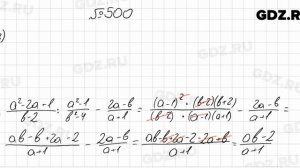 №500
GDZ.RU
)
a²-2a-1/b-2 : a²-1/b²-4 - 2a-b/a+1 = (a-1)²·(b-2)(b+2)/(b-2)·(a-1)(a+1) - 2a-b/a+1 =
ab-b+2a-2/a+1 - 2a-b/a+1 = ab-b+2a-2-2a+b/a+1 = ab-2/a+1